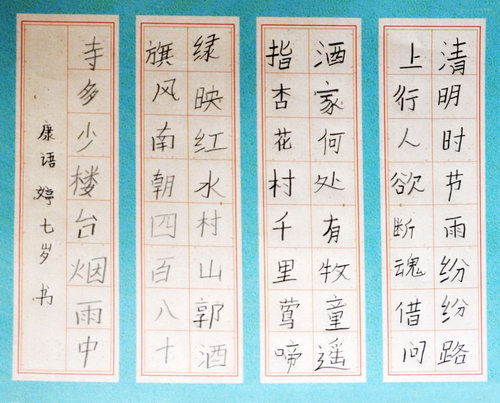 清明时节雨纷纷路
上行人欲断魂借问
酒家何处有牧童遥
指杏花村千里莺啼
绿映红水村山郭酒
旗风南朝四百八十
寺多少楼台烟雨中
康语婷七岁书